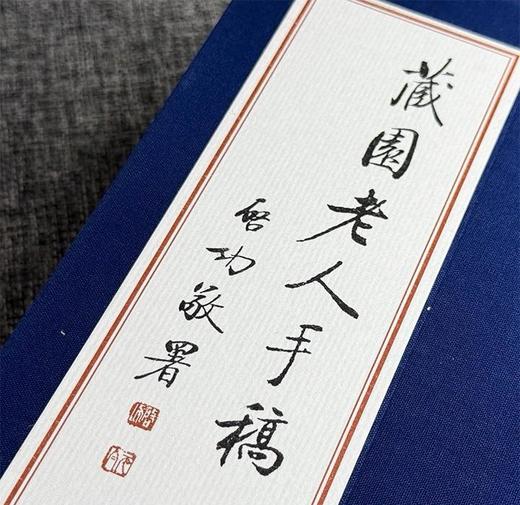 藏園老人手稿
啓功敬署